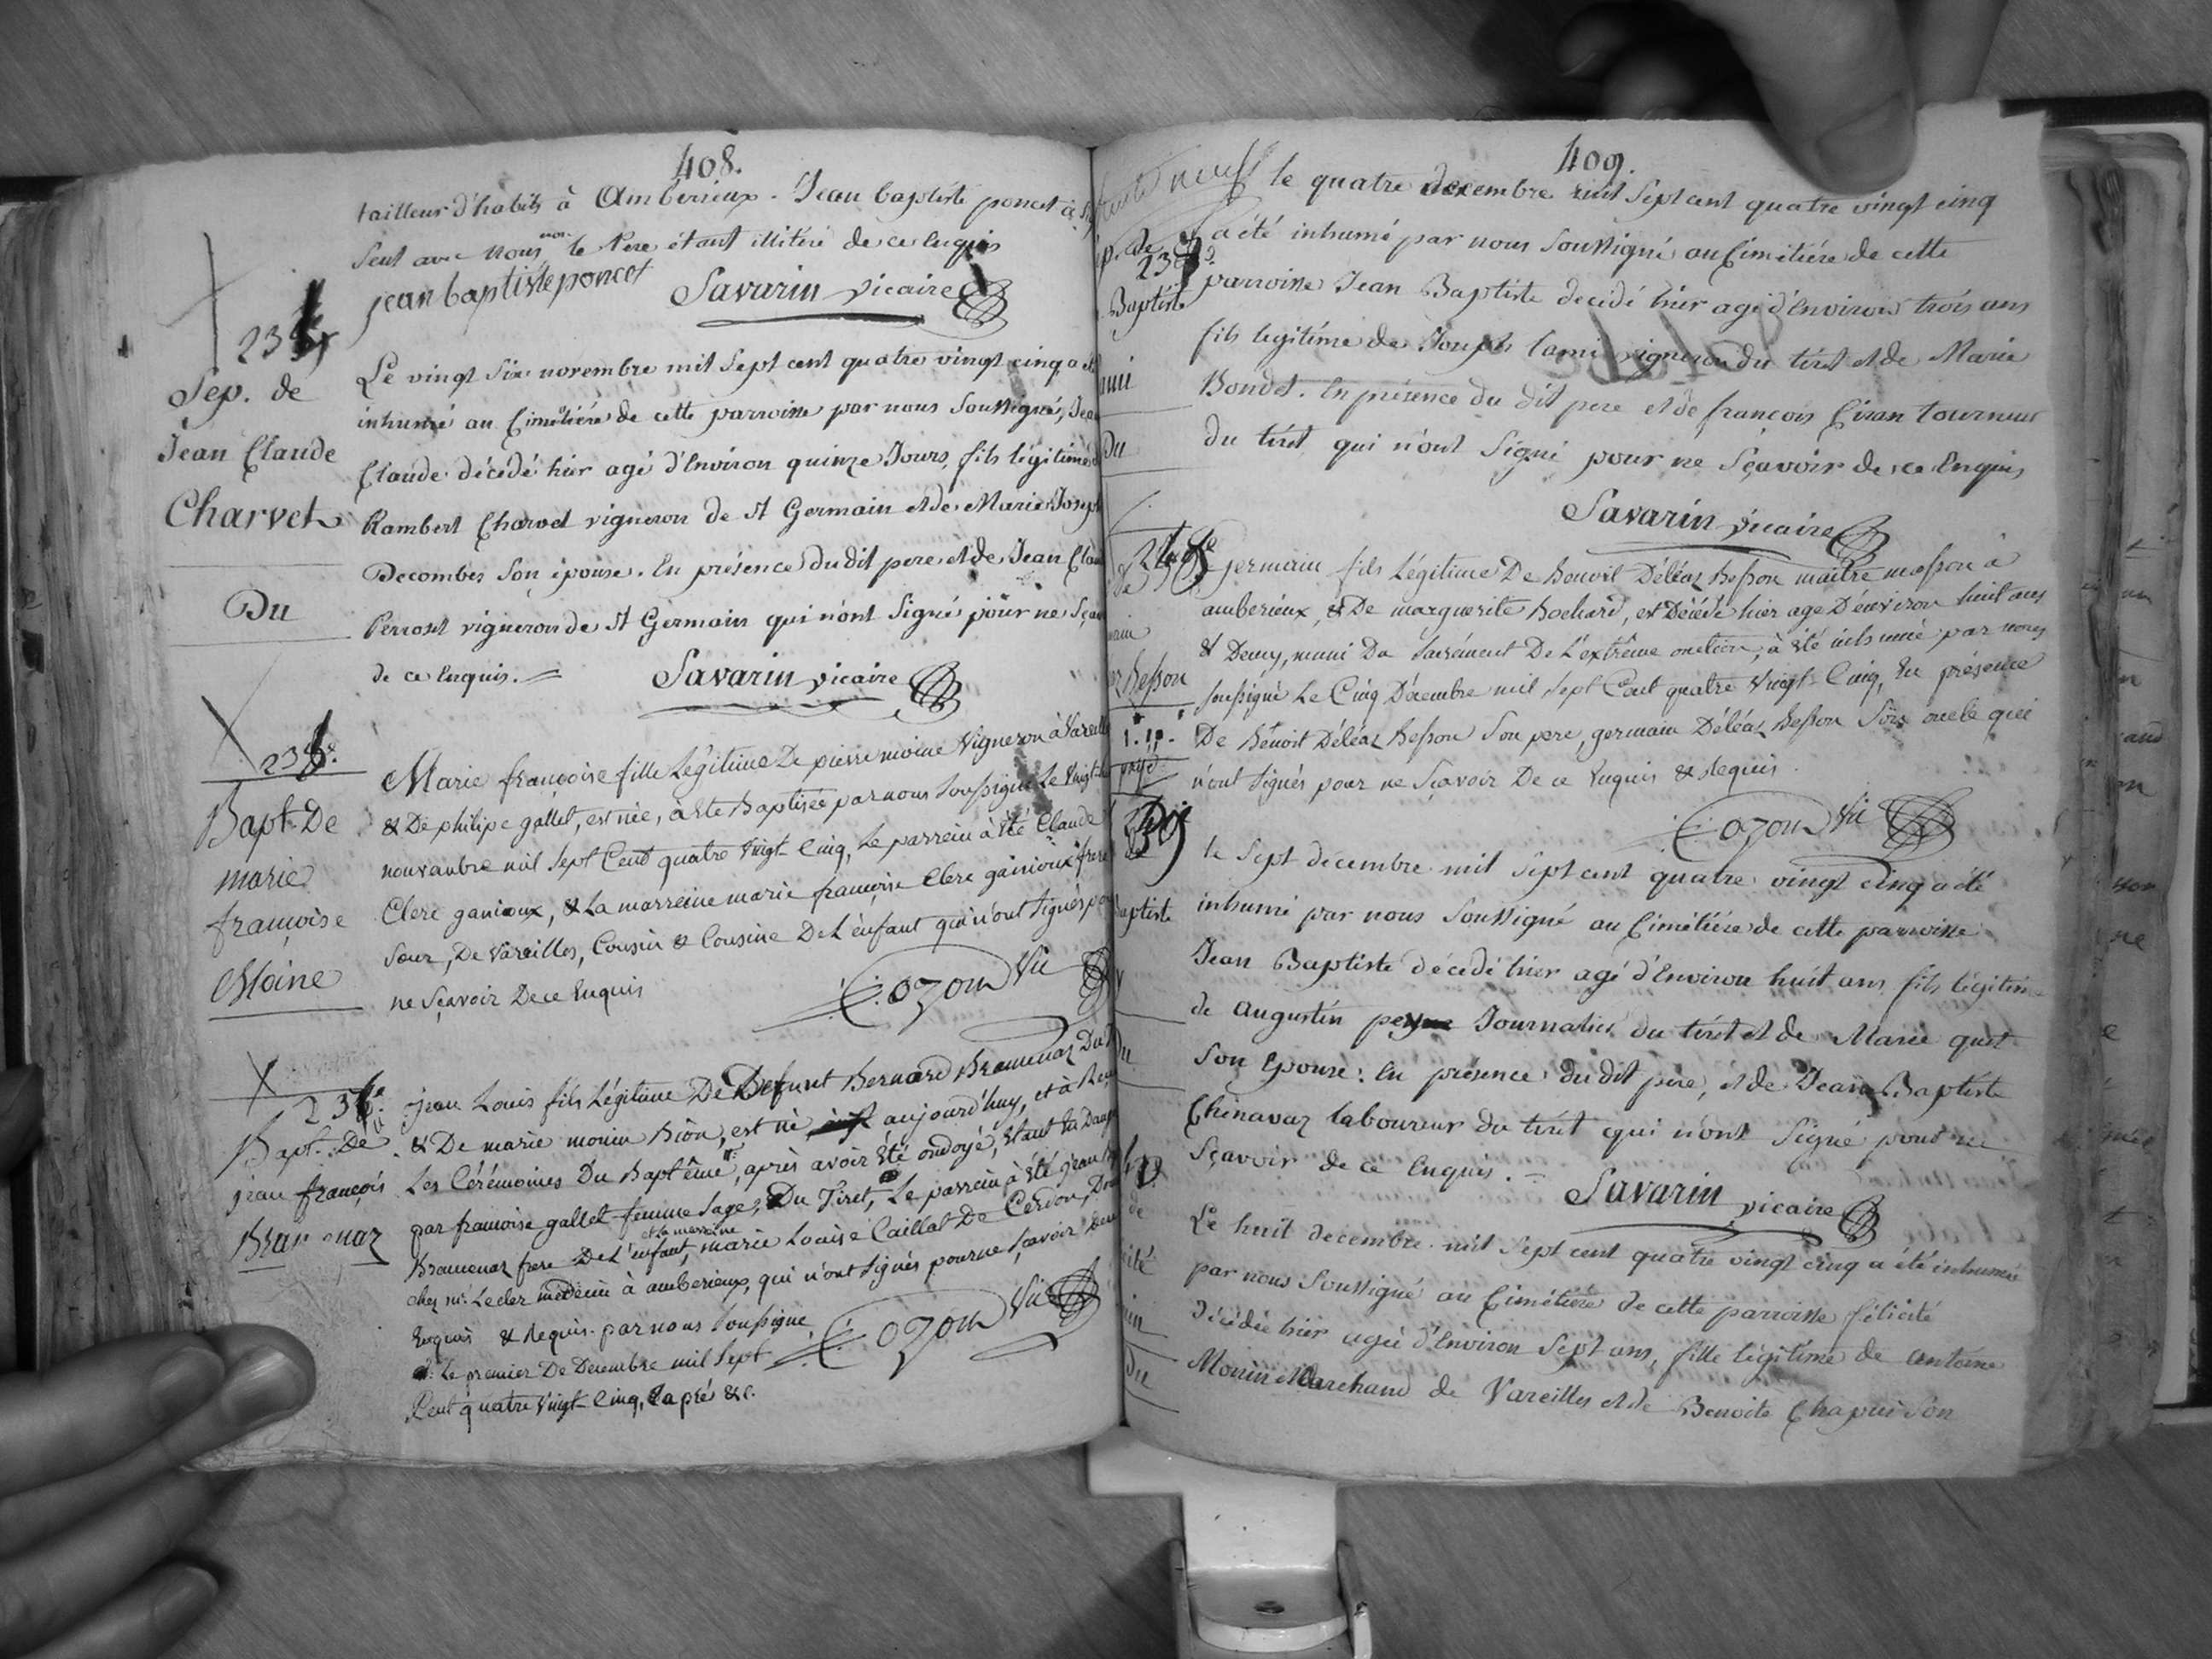 408.
tailleur d'habits à Amberieux. Jean baptiste poncet a
seul avec nous non le Pere étant illitéré de ce enquis
jean baptiste poncet Savarin vicaire
Sep. de
Jean Claude
Charvet
Du
Le vingt six novembre mil sept cent quatre vingt cinq a été
inhumé au Cimétiére de cette parroisse par nous soussigné, Jean
Claude décédé hier agé d'Environ quinze Jours, fils légitime
Rambert Charvet vigneron de St Germain et de Marie Joseph
Decombes son épouse. En présence du dit pere et de Jean Clau
Perrout vigneron de St Germain qui n'ont signé pour ne sçav
de ce enquis. = Savarin vicaire
Bapt. De
marie
françoise
Moine
Marie françoise fille Légitime De pierre moine Vigneron à Vareille
& De philipe gallet, est née, à Eté Baptisée par nous soussigné Le Vingt
nouvanbre mil sept Cent quatre Vingt-Cinq, Le parrein à Eté Claude
Clerc ganioux, & La marreine marie françoise Clerc gainioux frere
Sœur, De Vareilles, Cousin & Cousine De L'enfant qui n'ont signés po
ne sçavoir De ce Enquis C. ozon Vic
Bapt. De
jean françois
Bramenaz
jean Louis fils Légitime De Defunt Bernard Bramenaz Du
& De marie monin Bion, est né aujourd'huy, et à Reçu
Les Cérémonies Du Baptême, après avoir Eté ondoyé, Etant En Dang
par francoise gallet femme sage, Du Tiret, Le parrein à Eté jean
Bramenaz frere De L'enfant, et La marreine marie Louise Caillat De Cerdon, Do
chez mr. Lecler médecin à amberieux, qui n'ont signés pour ne sçavoir De ce
Enquis & Requis. par nous soussigné C. ozon Vic
Le premier De Decembre mil sept
Cent quatre Vingt-Cinq, Et apré &c.
409.
le quatre decembre mil sept cent quatre vingt cinq
a été inhumé par nous soussigné au Cimétiére de cette
parroisse Jean Baptiste decedé hier agé d'Environ trois ans
fils legitime de Joseph Lami vigneron du tiret et de Marie
Bondet. En présence du dit pere et de françois Ciran tourneur
du tiret qui n'ont signé pour ne sçavoir de ce enquis
Savarin vicaire
Baptiste
Du
germain fils Légitime De Benoit Déléaz Besson maitre masson à
amberieux, & De marguerite Bochard, est Décédé hier age D'environ huit ans
& Demy, muni Du sacrément De L'extrême onction, à Eté inhumé par nous
soussigné Le Cinq Décembre mil sept Cent quatre Vingt-Cinq, En présence
De Bénoit Déléaz Besson Son pere, germain Déléaz Besson Son oncle qui
n'ont signés pour ne sçavoir De ce Enquis & Requis.
C. ozon Vic
Besson
le sept decembre mil sept cent quatre vingt cinq a été
inhumé par nous soussigné au Cimétiére de cette parroisse
Jean Baptiste décedé hier agé d'Environ huit ans fils légitim
de Augustin Journalier du tiret et de Marie quet
son Epouse: En présence du dit pere, et de Jean Baptiste
Chenavaz laboureur du tiret qui n'ont signé pour ne
sçavoir de ce enquis. = Savarin vicaire
aptiste
Le huit decembre mil sept cent quatre vingt cinq a été inhumée
par nous soussigné au Cimétiére de cette parroisse félicité
décédée hier agée d'Environ sept ans, fille légitime de Antoine
Monin Marchand de Vareilles et de Benoite Chapui son
Du